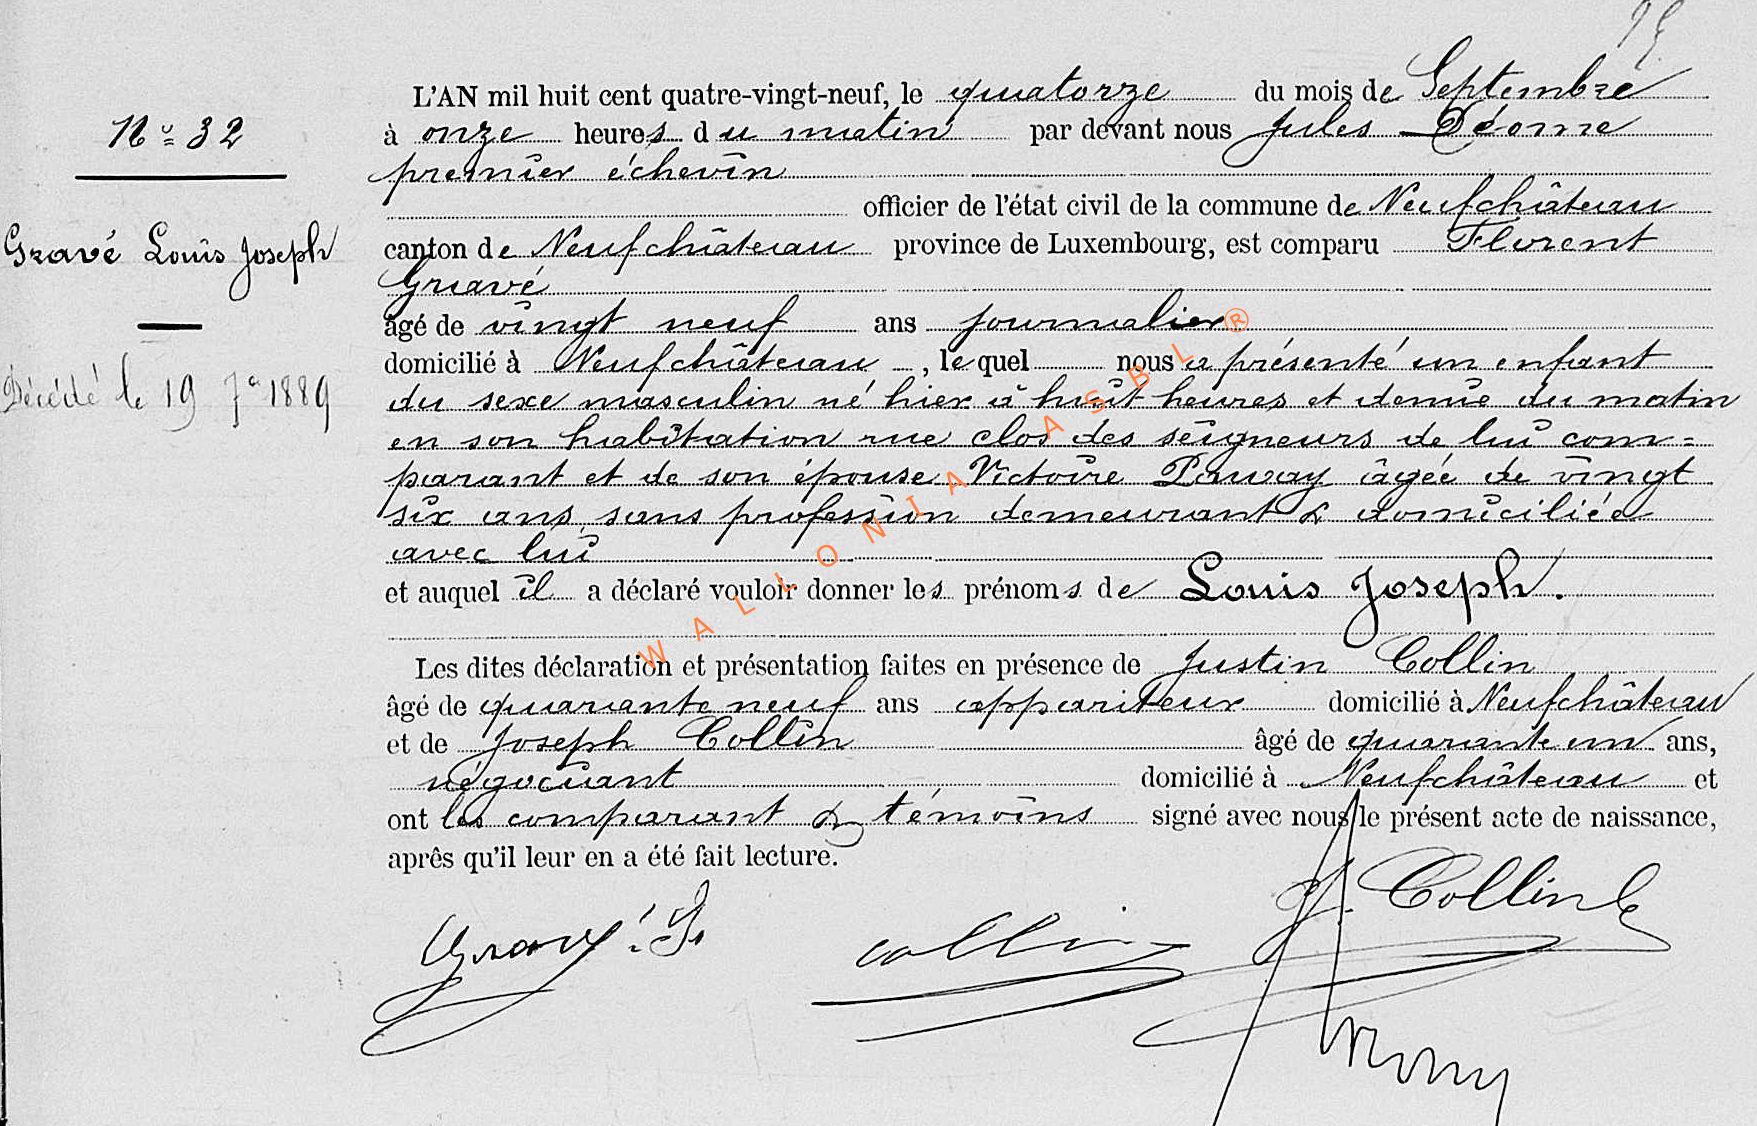 N° 32
Gravé Louis Joseph
Décédé le 19 7e 1889
L'AN mil huit cent quatre-vingt-neuf, le quatorze du mois de Septembre
à onze heures du matin par devant nous Jules Déome
premier échevin
officier de l'état civil de la commune de Neufchâteau
canton de Neufchâteau province de Luxembourg, est comparu Florent
Gravé
âgé de vingt neuf ans journalier
domicilié à Neufchâteau, lequel nous a présenté un enfant
du sexe masculin né hier à huit heures et demie du matin
en son habitation rue clos des seigneurs de lui com=
parant et de son épouse Victoire Pauvay âgée de vingt
six ans, sans profession demeurant & domiciliée
avec lui
et auquel il a déclaré vouloir donner les prénoms de Louis Joseph.
Les dites déclaration et présentation faites en présence de Justin Collin
âgé de quarante neuf ans appariteur domicilié à Neufchâteau
et de Joseph Collin âgé de quarante un ans,
négociant domicilié à Neufchâteau et
ont les comparant & témoins signé avec nous le présent acte de naissance,
après qu'il leur en a été fait lecture.
Gravé. F. collin J. Collin
WALLONIA ASBL ®